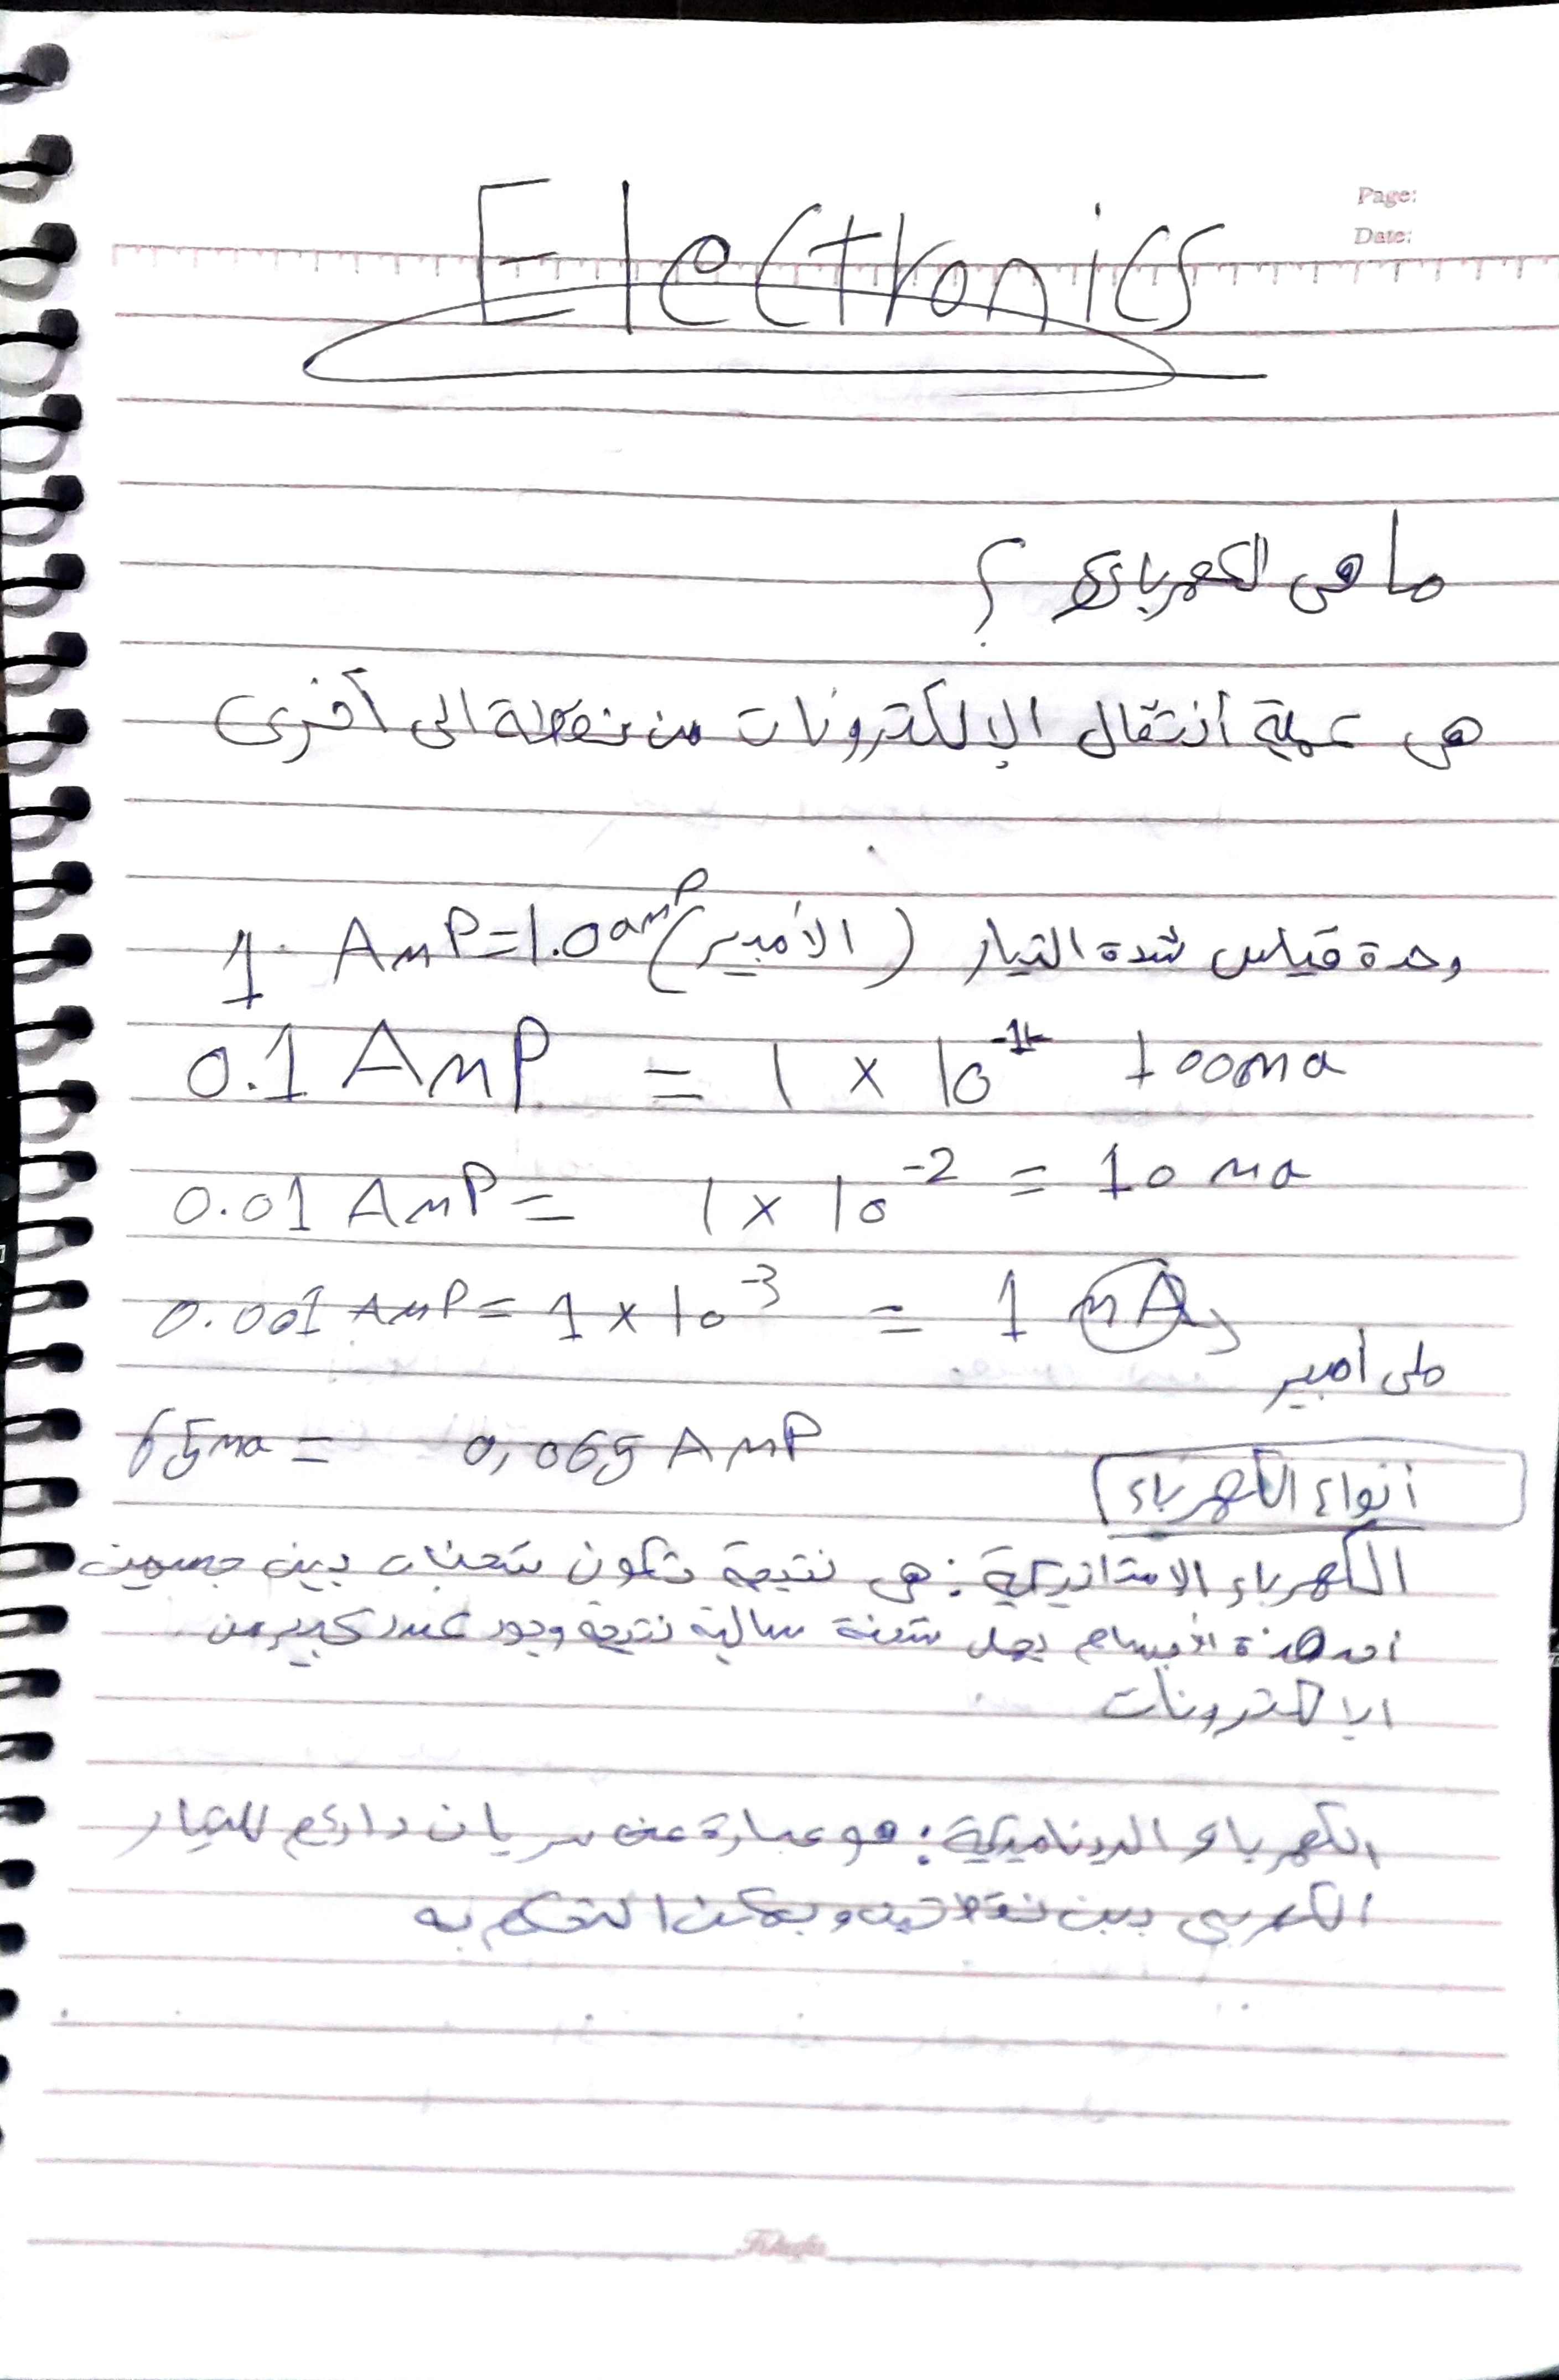 Page:
Date:
Electronics
ما هى الكهرباء ؟
هى عملية أنتقال الإلكترونات من نقطة الى أخرى
وحدة قياس شدة التيار (الأمبير) 1 AmP=1.0 amp
0.1 AmP = 1 x 10⁻¹ 100ma
0.01 AmP = 1 x 10⁻² = 10 ma
0.001 AmP = 1 x 10⁻³ = 1 mA
ملى أمبير
65ma = 0,065 AmP
أنواع الكهرباء
الكهرباء الاستاتيكية: هى نتيجة تكون شحنات بين جسمين
أحد هذة الأجسام يحمل شحنة سالبة نتيجة وجود عدد كبير من
الإلكترونات
الكهرباء الديناميكية: هو عبارة عن سريان دائم للتيار
الكهربى بين نقطتين ويمكن التحكم به